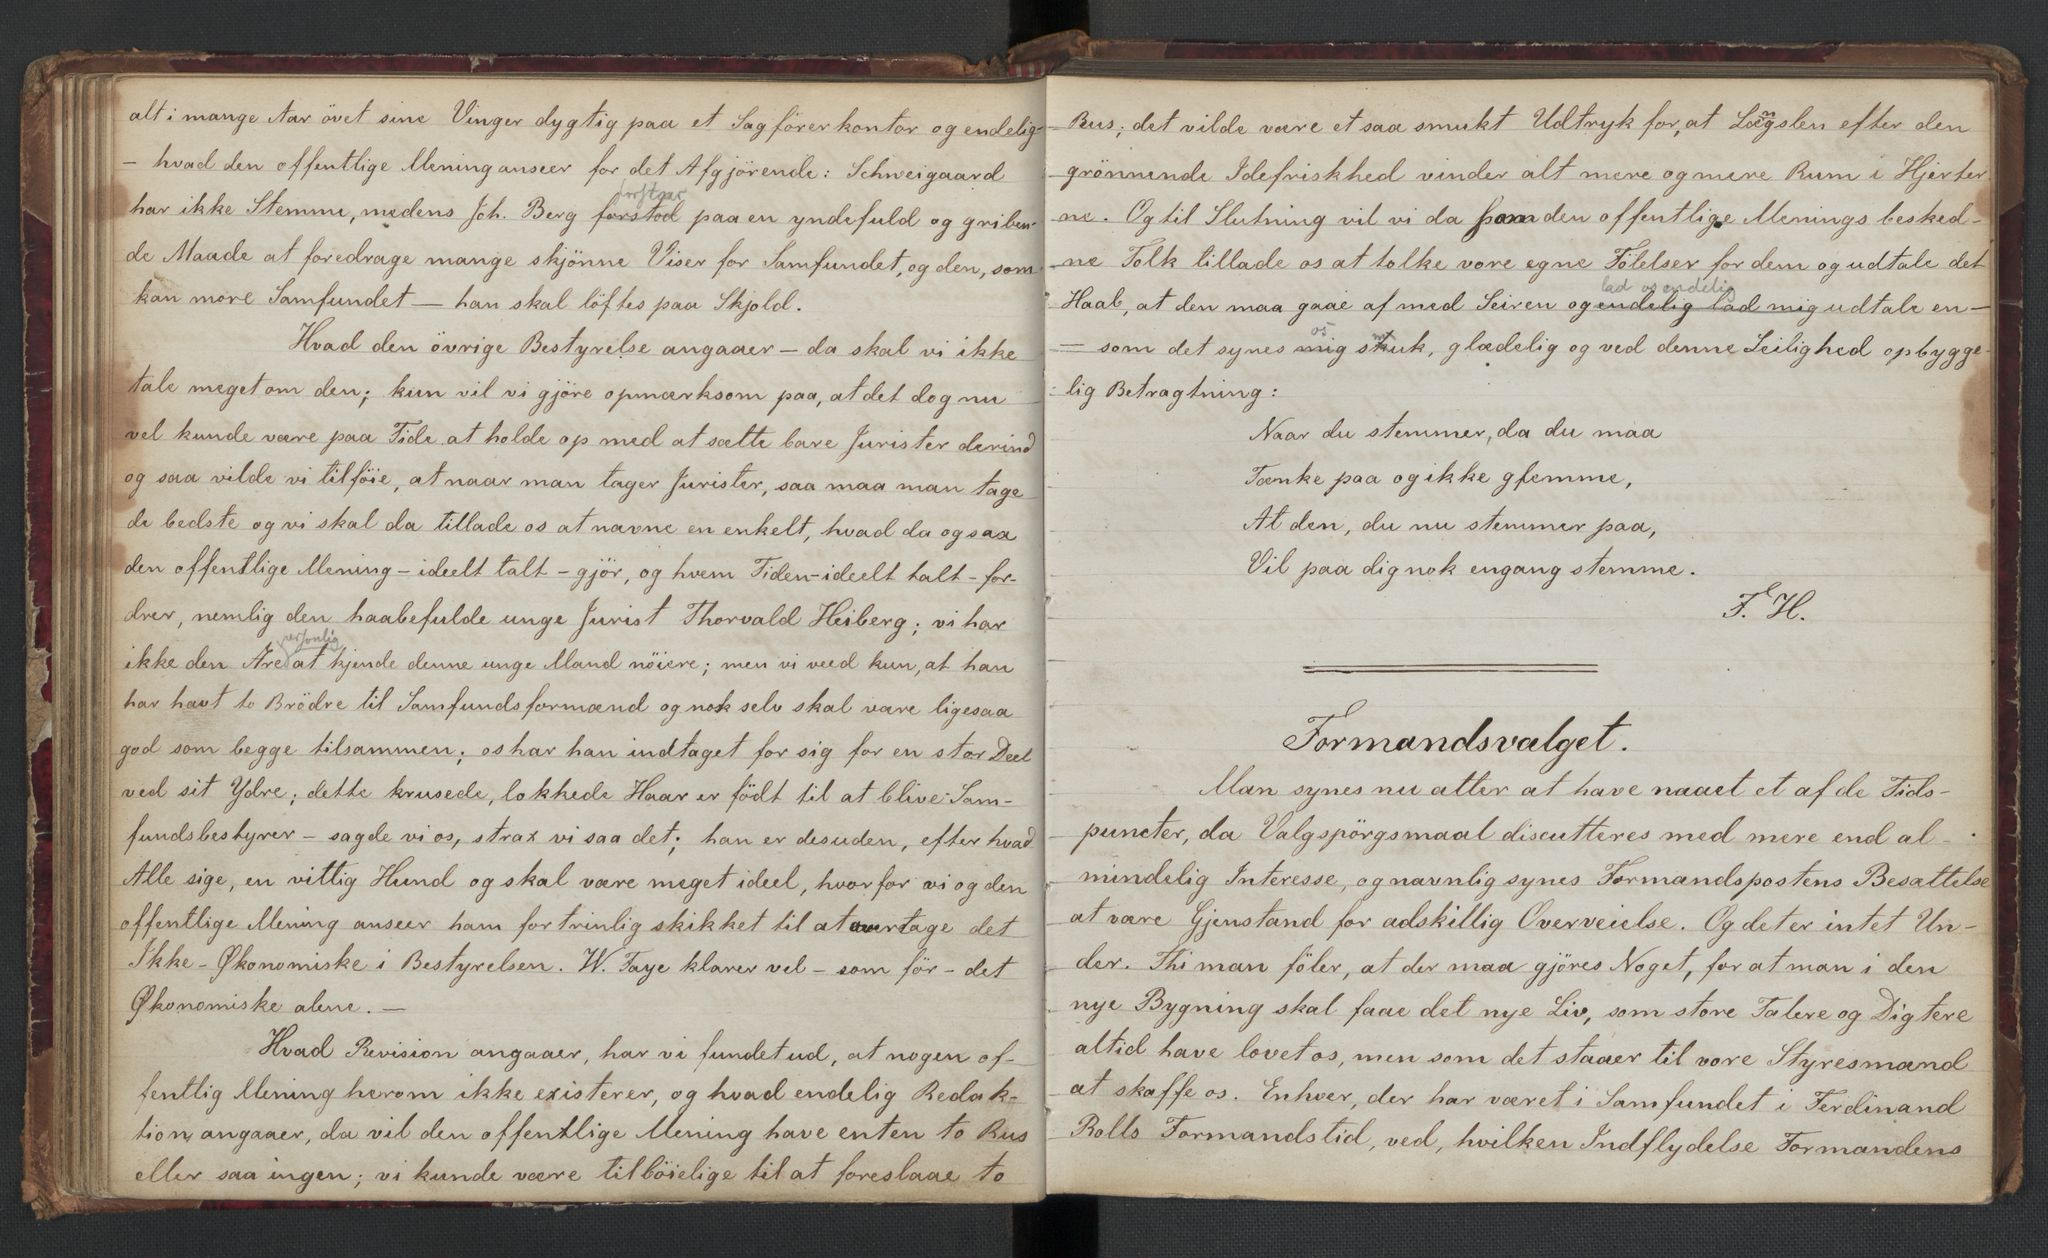 alt i mange Aar övet sine Vinger dygtig paa et Sagförerkontor og endelig-
- hvad den offentlige Mening anseer for det Afgjörende: Schweigaard
forstaar
har ikke Stemme, medens Joh. Berg forstod paa en yndefuld og griben-
de Maade at foredrage mange skjönne Viser for Samfundet, og den, som
kan more Samfundet — han skal löftes paa Skjold.
Hvad den övrige Bestyrelse angaaer — da skal vi ikke
tale meget om den; kun vil vi gjöre opmærksom paa, at det dog nu
vel kunde være paa Tide at holde op med at sætte bare Jurister derind
og saa vilde vi tilföie, at naar man tager Jurister, saa maa man tage
de bedste og vi skal da tillade os at navne en enkelt, hvad da ogsaa
den offentlige Mening - ideelt talt - gjör, og hvem Tiden - ideelt talt - for-
drer, nemlig den haabefulde unge Jurist Thorvald Heiberg; vi har
personlig
ikke den Ære at kjende denne unge Mand nöiere; men vi veed kun, at han
har havt to Brödre til Samfundsformænd og nok selv skal være ligesaa
god som begge tilsammen; os har han indtaget for sig for en stor Deel
ved sit Ydre; dette krusede, lokkede Haar er födt til at blive Sam-
fundsbestyrer - sagde vi os, strax vi saa det; han er desuden, efter hvad
Alle sige, en vittig Hund og skal være meget ideel, hvorfor vi og den
offentlige Mening anseer ham fortrinlig skikket til at overtage det
Ikke-Økonomiske i Bestyrelsen. W. Faye klarer vel - som för - det
Økonomiske alene. —
Hvad Revision angaaer, har vi fundet ud, at nogen of-
fentlig Mening herom ikke existerer, og hvad endelig Redak-
tion angaaer, da vil den offentlige Mening have enten to Rus
eller saa ingen; vi kunde være tilböielige til at foreslaae to
Rus; det vilde være et saa smukt Udtryk for, at Længslen efter den
grönnende Idefriskhed vinder alt mere og mere Rum i Hjerter
ne. Og til Slutning vil vi da som den offentlige Menings besked-
ne Tolk tillade os at tolke vore egne Fölelser for dem og udtale det
lad os endelig
Haab, at den maa gaae af med Seiren og endelig lad mig udtale en—
os
— som det synes mig smuk, glædelig og ved denne Leilighed opbygge-
lig Betragtning:
Naar du stemmer, da du maa
Tænke paa og ikke glemme,
At den, du nu stemmer paa,
Vil paa dig nok engang stemme.
F. H.
Formandsvalget.
Man synes nu atter at have naaet et af de Tids-
puncter, da Valgspörgsmaal discutteres med mere end al-
mindelig Interesse, og navnlig synes Formandspostens Besættelse
at være Gjenstand for adskillig Overveielse. Og det er intet Un-
der. Thi man föler, at der maa gjöres Noget, for at man i den
nye Bygning skal faae det nye Liv, som store Talere og Digtere
altid have lovet os, men som det staaer til vore Styresmænd
at skaffe os. Enhver, der har været i Samfundet i Ferdinand
Rolls Formandstid, ved, hvilken Indflydelse Formandens